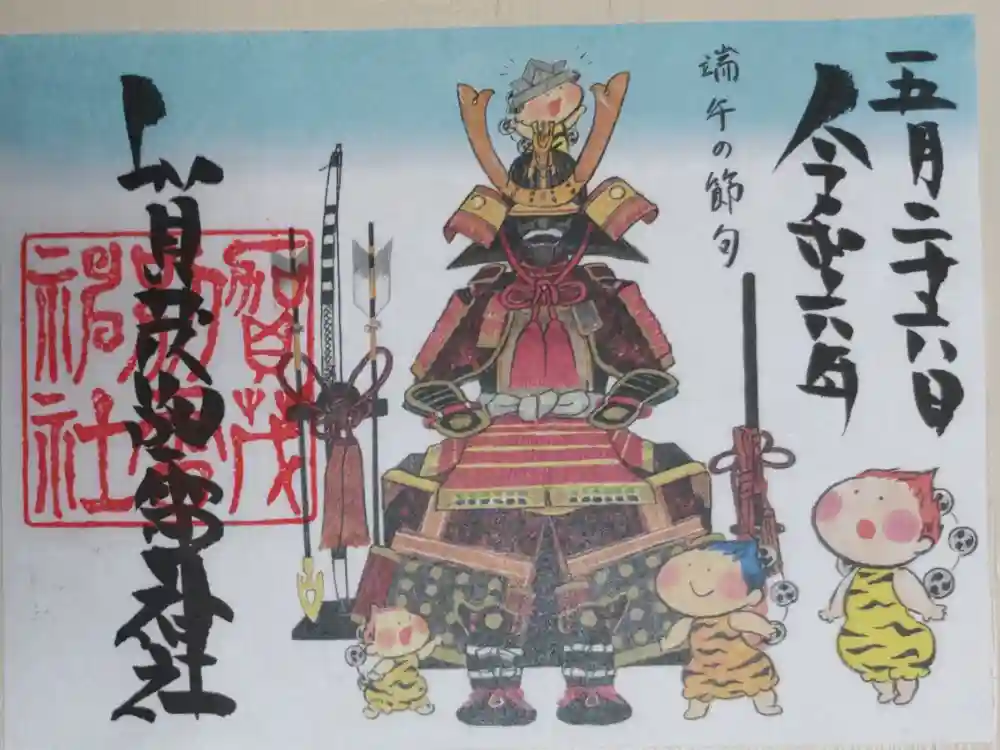 五月二十六日
令和六年
端午の節句
賀茂別雷神社
賀茂
別雷
神社